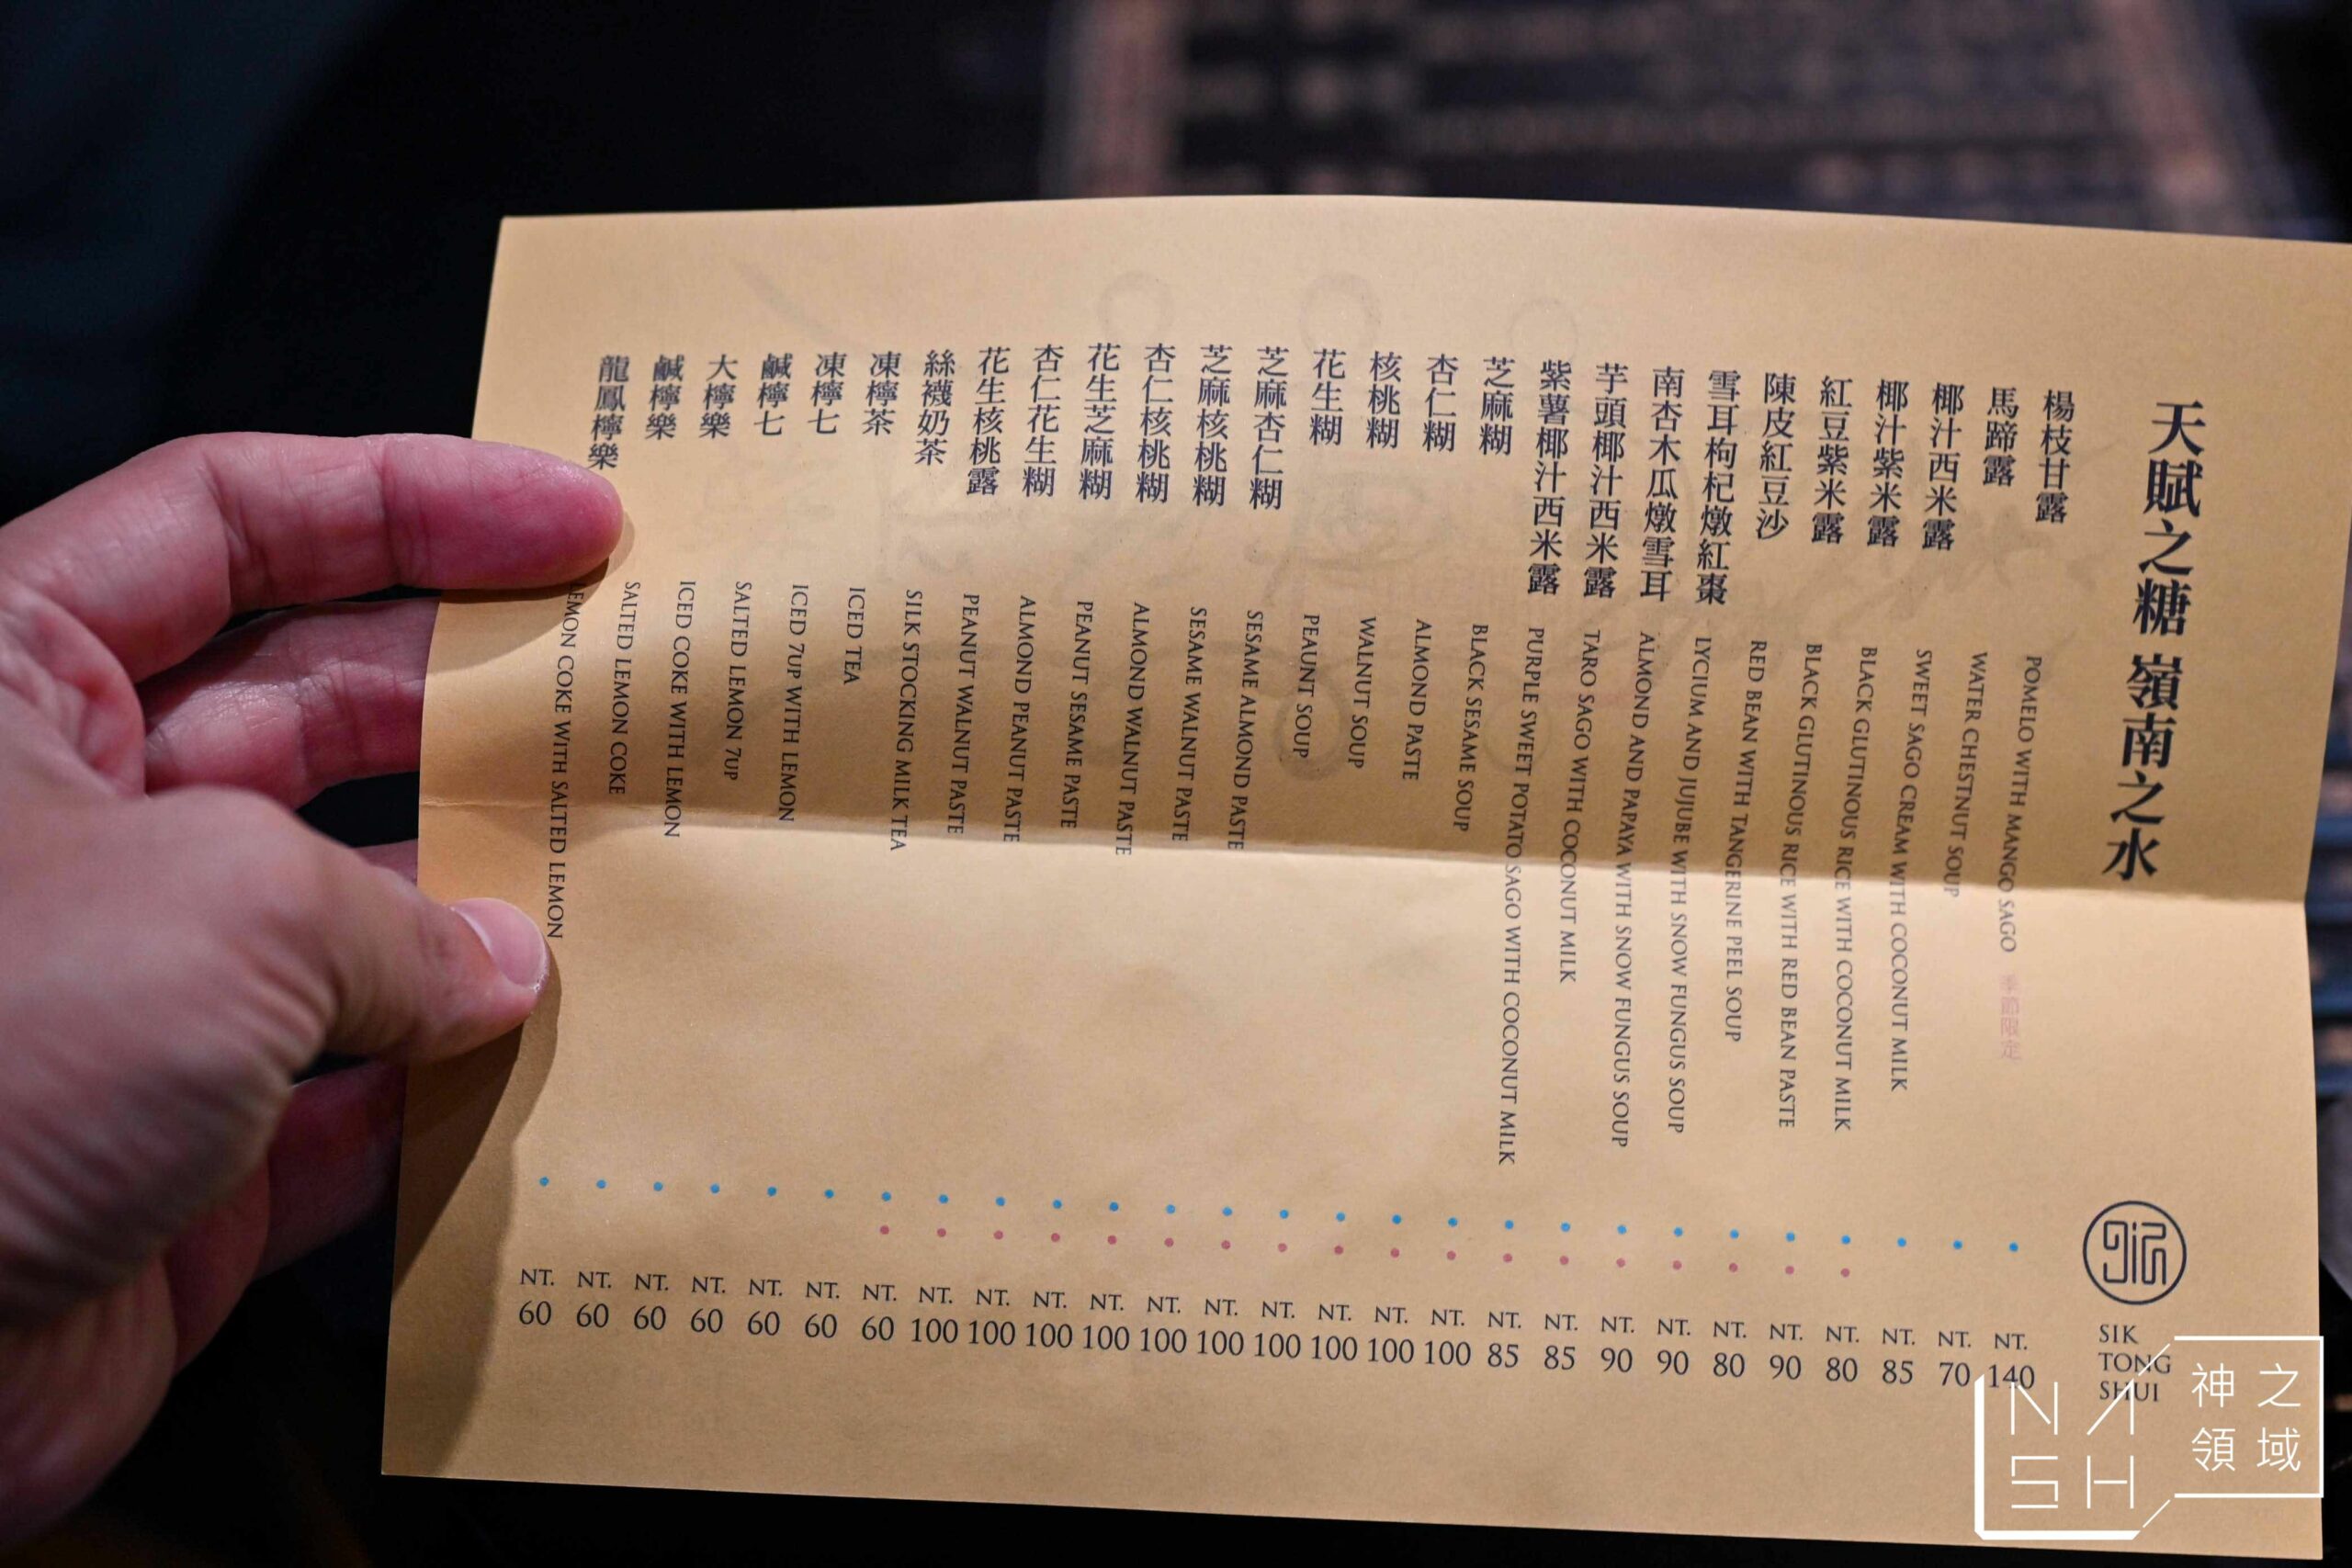 天賦之糖 嶺南之水
SIK
TONG
SHUI
楊枝甘露 POMELO WITH MANGO SAGO 季節限定 NT. 140
馬蹄露 WATER CHESTNUT SOUP NT. 70
椰汁西米露 SWEET SAGO CREAM WITH COCONUT MILK NT. 85
椰汁紫米露 BLACK GLUTINOUS RICE WITH COCONUT MILK NT. 80
紅豆紫米露 BLACK GLUTINOUS RICE WITH RED BEAN PASTE NT. 90
陳皮紅豆沙 RED BEAN WITH TANGERINE PEEL SOUP NT. 80
雪耳枸杞燉紅棗 LYCIUM AND JUJUBE WITH SNOW FUNGUS SOUP NT. 90
南杏木瓜燉雪耳 ALMOND AND PAPAYA WITH SNOW FUNGUS SOUP NT. 90
芋頭椰汁西米露 TARO SAGO WITH COCONUT MILK NT. 85
紫薯椰汁西米露 PURPLE SWEET POTATO SAGO WITH COCONUT MILK NT. 85
芝麻糊 BLACK SESAME SOUP NT. 100
杏仁糊 ALMOND PASTE NT. 100
核桃糊 WALNUT SOUP NT. 100
花生糊 PEAUNT SOUP NT. 100
芝麻杏仁糊 SESAME ALMOND PASTE NT. 100
芝麻核桃糊 SESAME WALNUT PASTE NT. 100
杏仁核桃糊 ALMOND WALNUT PASTE NT. 100
花生芝麻糊 PEANUT SESAME PASTE NT. 100
杏仁花生糊 ALMOND PEANUT PASTE NT. 100
花生核桃露 PEANUT WALNUT PASTE NT. 100
絲襪奶茶 SILK STOCKING MILK TEA NT. 60
凍檸茶 ICED TEA NT. 60
凍檸七 ICED 7UP WITH LEMON NT. 60
鹹檸七 SALTED LEMON 7UP NT. 60
大檸樂 ICED COKE WITH LEMON NT. 60
鹹檸樂 SALTED LEMON COKE NT. 60
龍鳳檸樂 LEMON COKE WITH SALTED LEMON NT. 60
NASH
神之領域